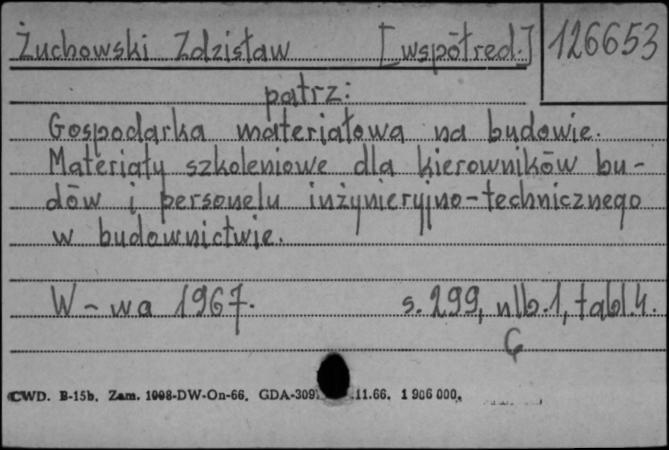 Żuchowski Zdzisław [współred.] 126653
patrz:
Gospodarka materiałowa na budowie.
Materiały szkoleniowe dla kierowników bu-
dów i personelu inżynieryjno-technicznego
w budownictwie.
W-wa 1967. s. 299, nlb. 1, tabl. 4.
G
CWD. B-15b. Zam. 1098-DW-On-66. GDA-309 .11.66. 1 906 000.